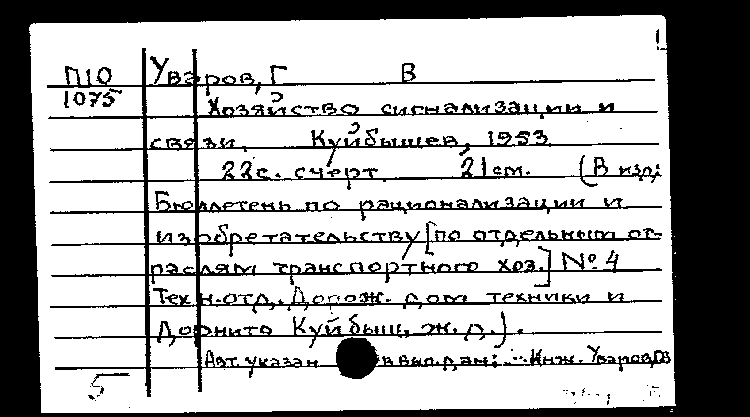 П10 Уваров, Г В
1075 Хозяйство сигнализации и
связи. Куйбышев, 1953
22с. счерт 21cm. (В изд:
Бюллетень по рационализации и
изобретательству [по отдельным от-
раслям транспортного хоз.] № 4
Техн.отд. Дорож. дом техники и
Дорнито Куйбыш. ж.д.).
Авт. указан в вып. дан: Инж. Уваров, ГВ
5